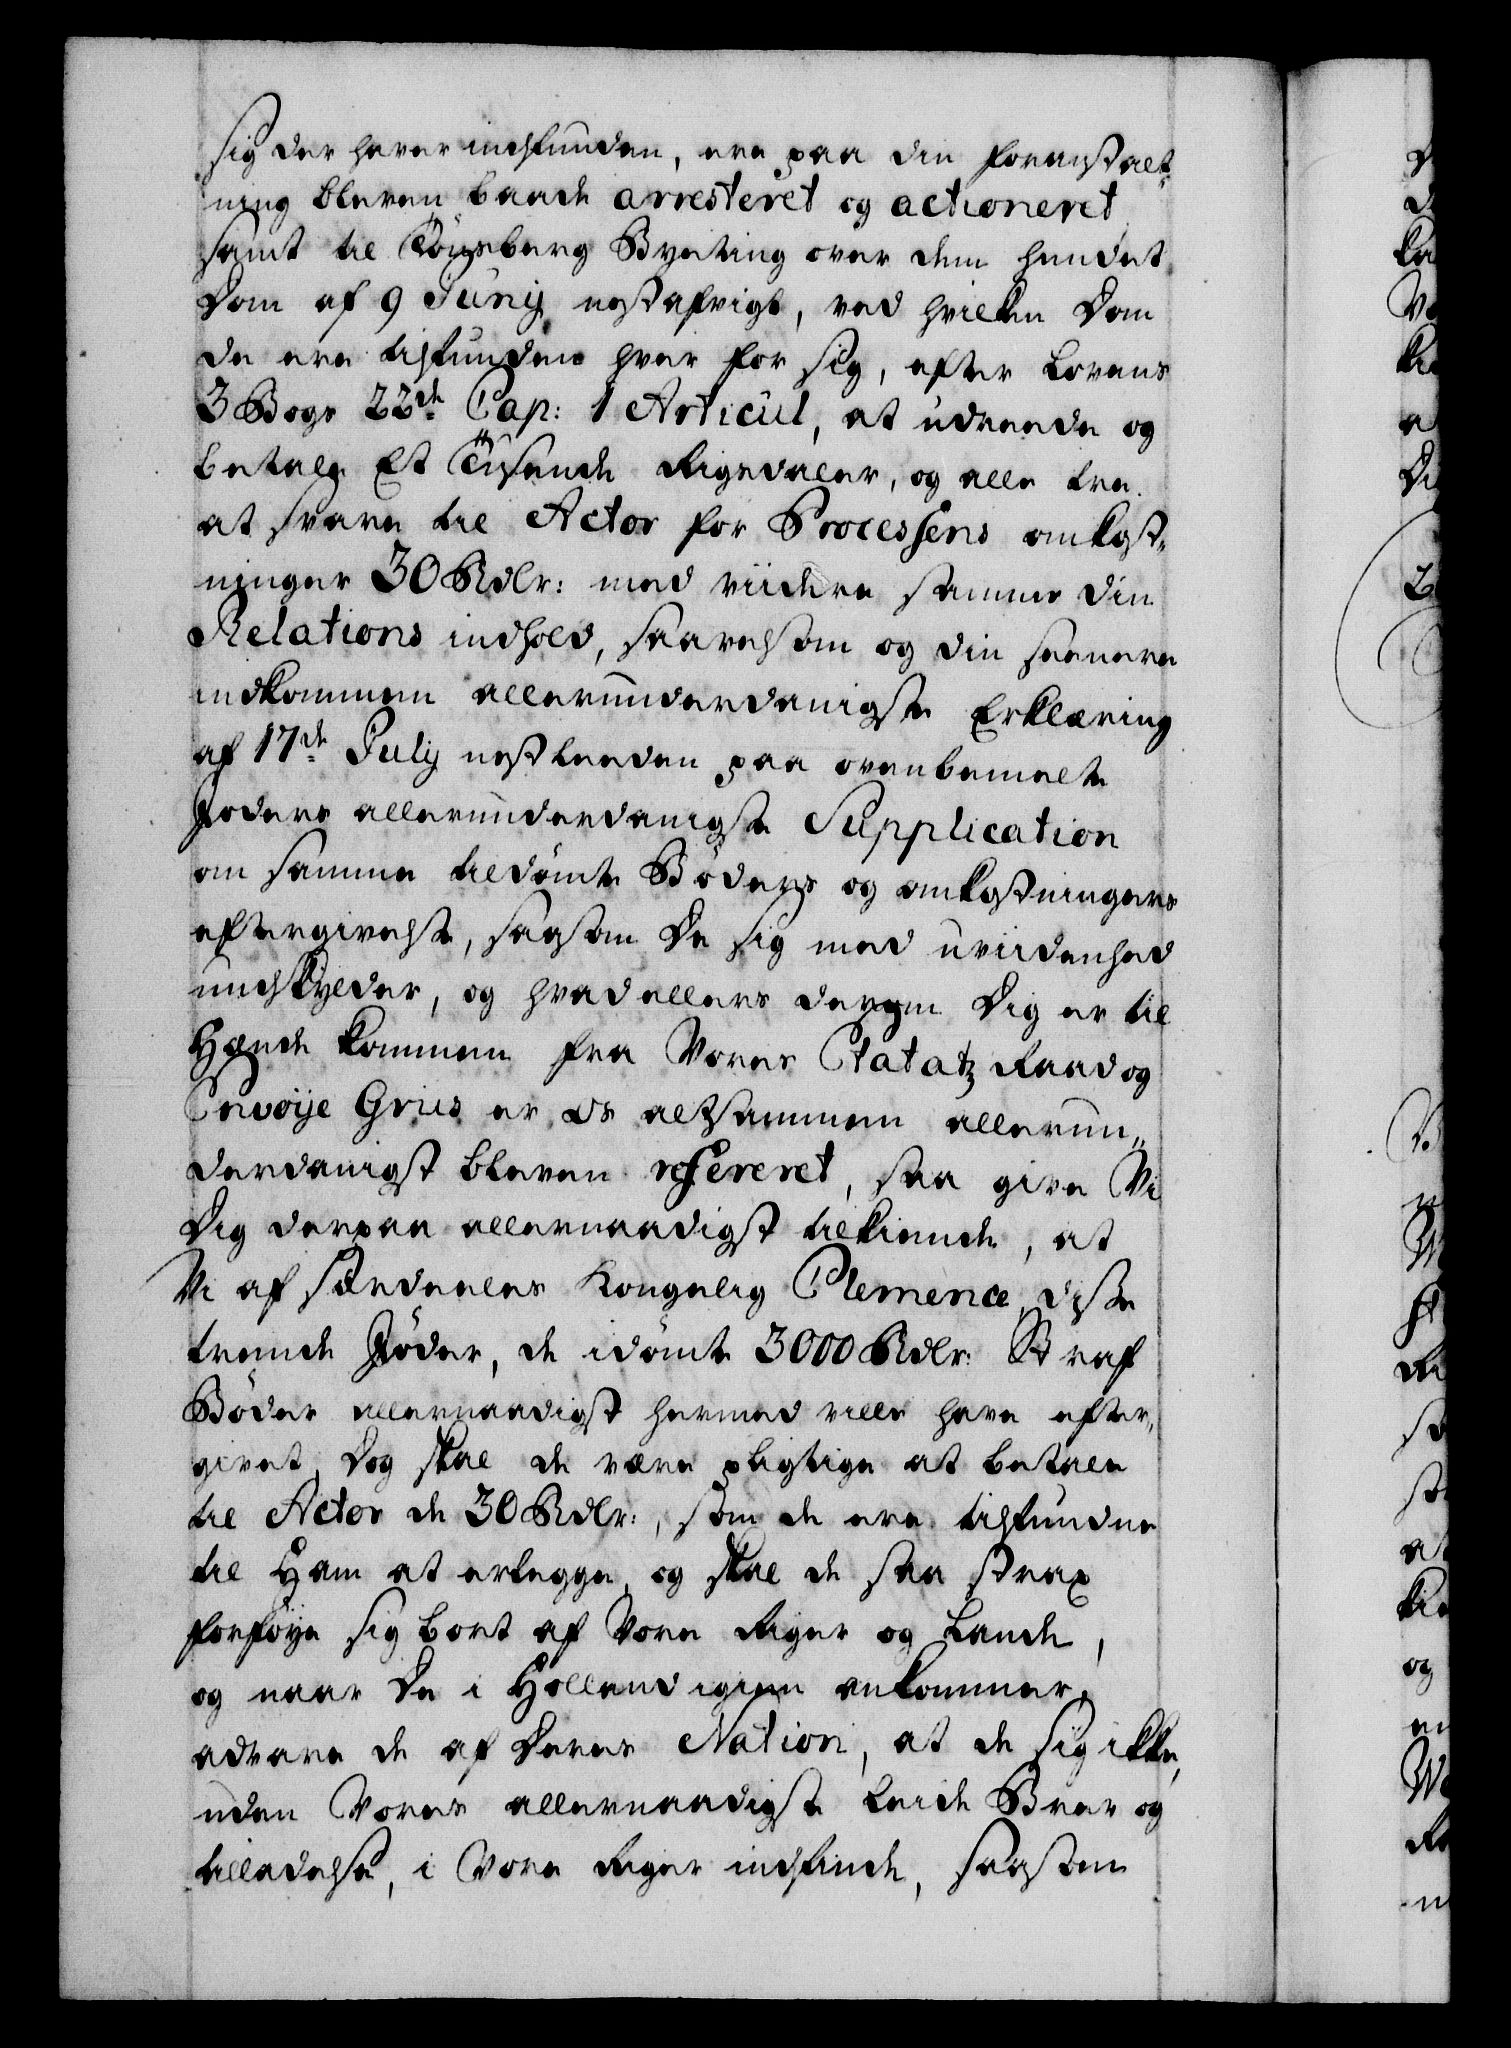 sig der haver indfunden, ere paa din foranstalt,,
ning bleven baade arresteret og actioneret
samt til Tönsberg Byeting over dem hendet
Dom af 9 Junij nestafvigt, ved hvilken Dom
de ere tilfunden hver for sig, efter Lovens
3 Bogs 22de Cap: 1 Articul, at udreede og
betale Et Tusende Rigsdaler, og alle tre
at svare til Actor for Processens omkost,,
ninger 30 Rdlr: med viidere samme din
Relations indhold, saavelsom og din seenere
indkommen allerunderdanigste Erklæring
af 17de Julij nestleeden paa ovenbemelte
Jøders allerunderdanigste Supplication
om samme tildömte Böders og omkostningers
eftergivelse, saasom De sig med uviidenhed
undskylder, og hvad ellers derom Dig er til
Hænde kommen fra Vores Etatz Raad og
Envöije Griis er os altsammen allerun,,
derdanigst bleven refereret, saa give Vi
Dig derpaa allernaadigst tilkiende, at
Vi af særdeeles Kongelig Clemence disse
trende Jöder, de idömte 3000 Rdlr: Straf
Böder allernaadigst hermed ville have efter,,
givet, Dog skal de være pligtige at betale
til Actor de 30 Rdlr:, som de ere tilfundne
til Ham at erlegge, og skal de saa strax
forföye sig bort af Vore Riger og Lande,
og naar De i Holland igien ankommer,
advare de af Deres Nation, at de sig ikke,
uden Vores allernaadigste Leide Brev og
tilladelse, i Vore Riger indfinde, saasom